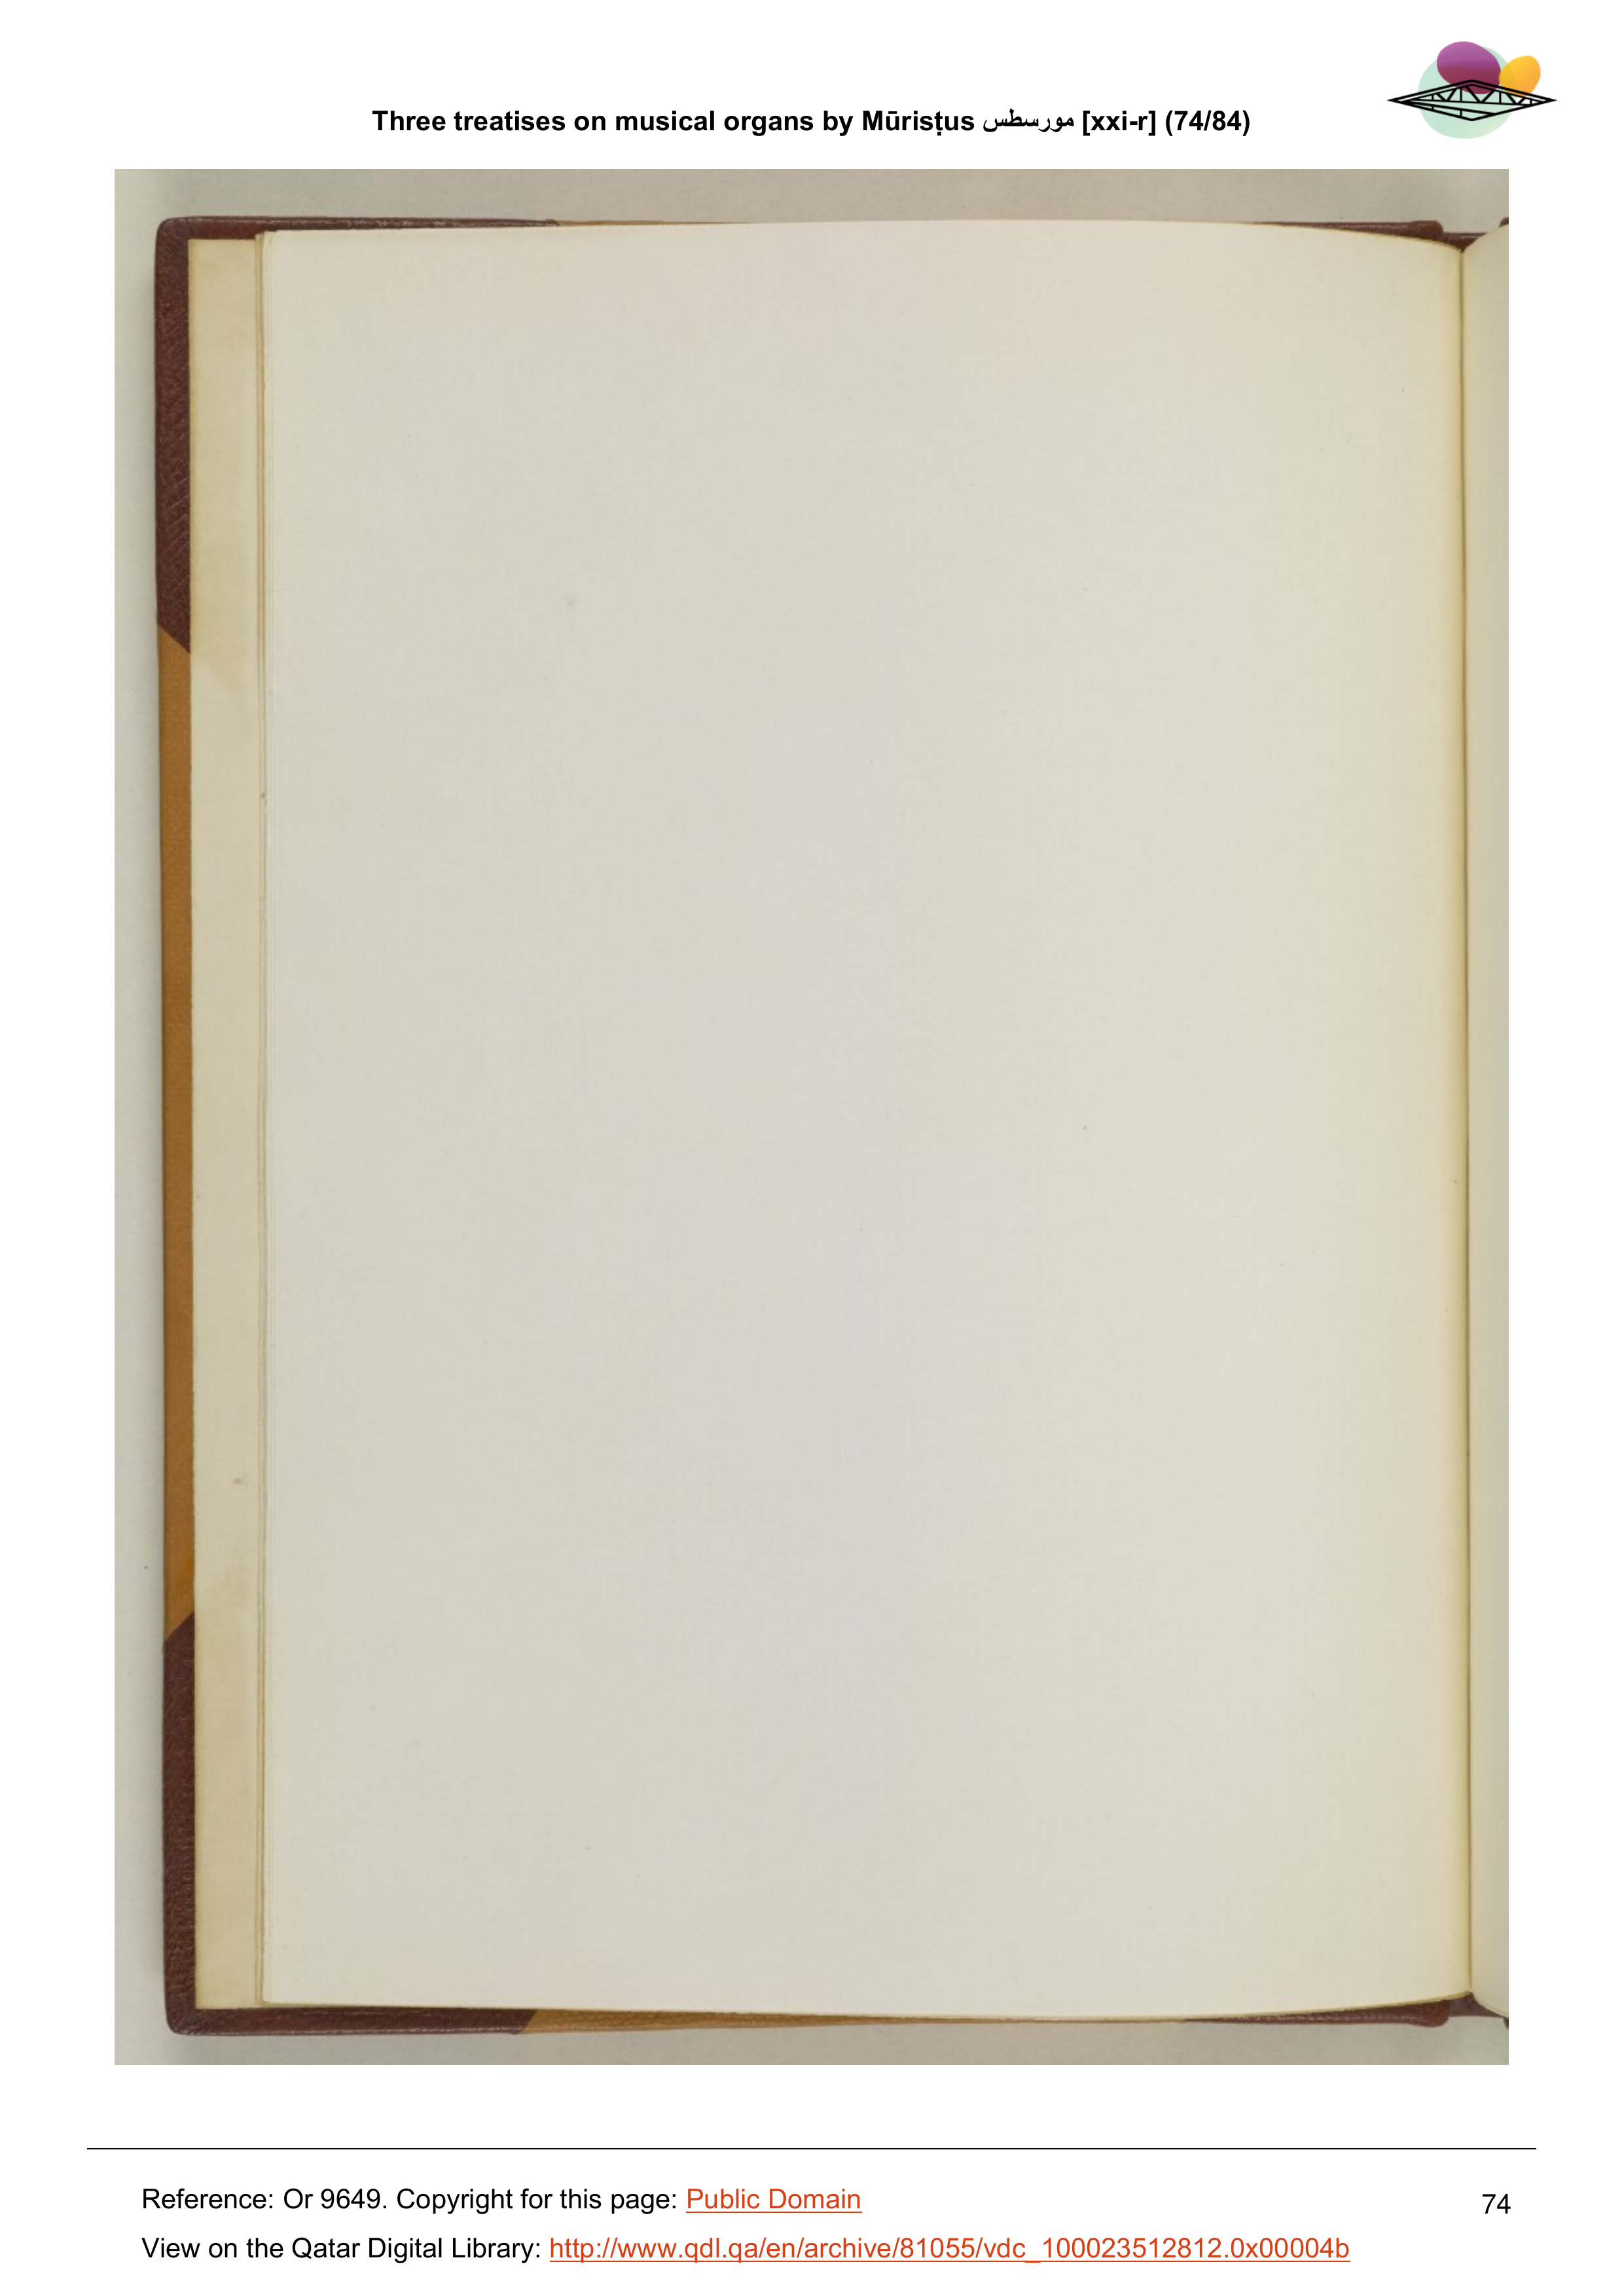 Three treatises on musical organs by Mūrisṭus مورسطس [xxi-r] (74/84)
Reference: Or 9649. Copyright for this page: Public Domain
74
View on the Qatar Digital Library: http://www.qdl.qa/en/archive/81055/vdc_100023512812.0x00004b